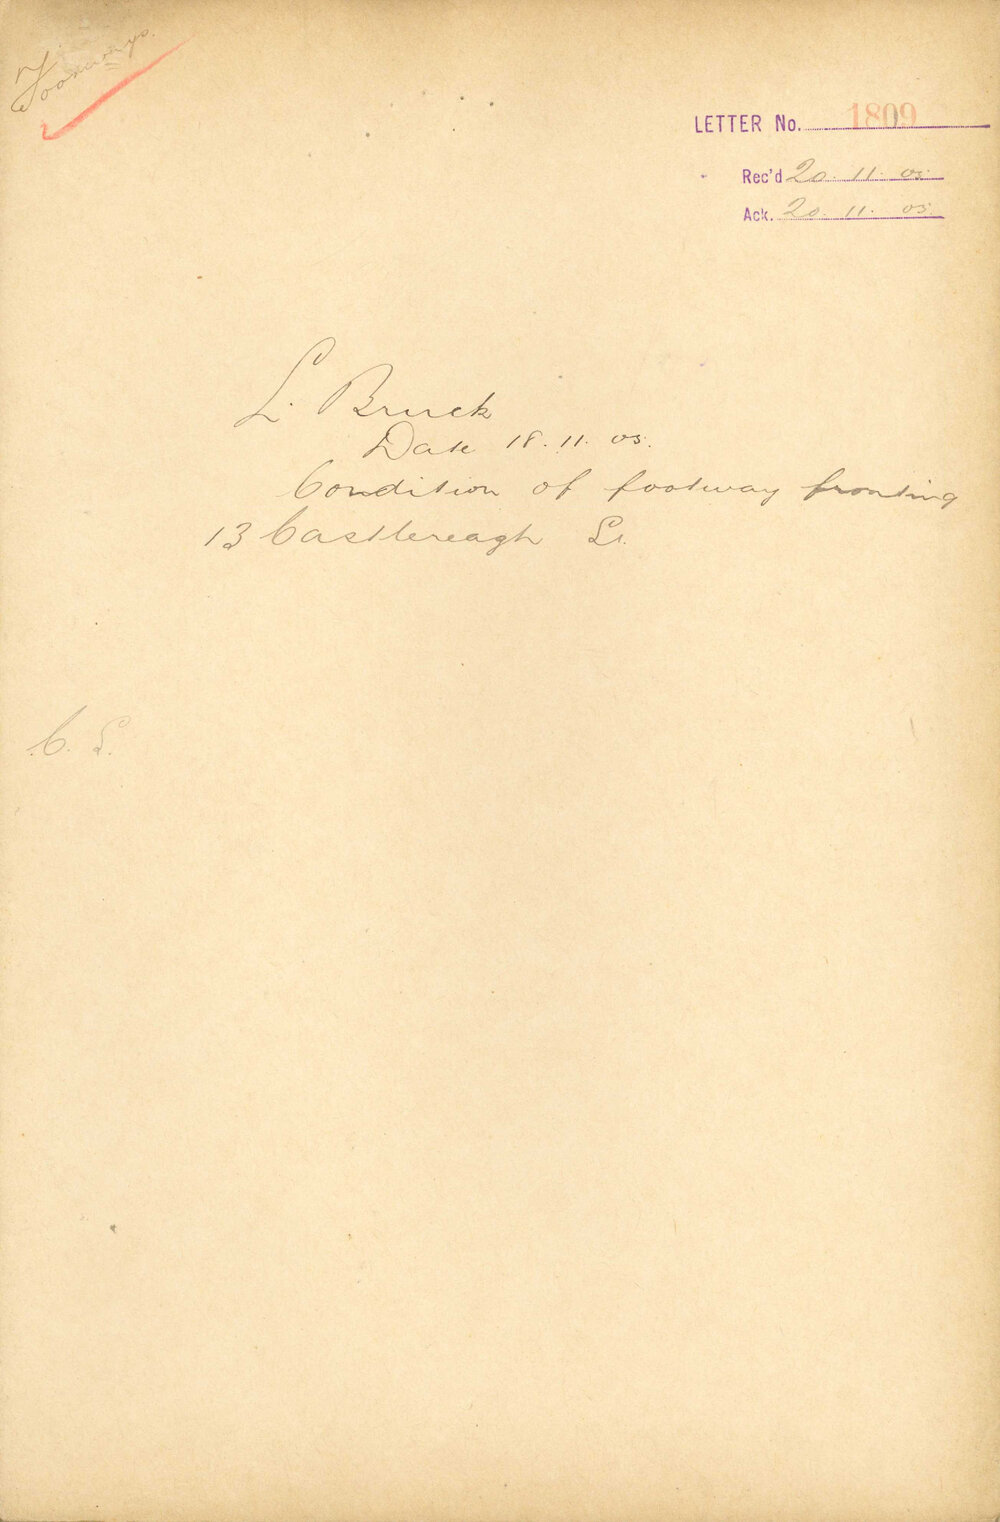 Footways.
LETTER No. 1809
Rec'd 20. 11. 05
Ack. 20. 11. 05
L. Bruck
Date 18. 11. 05.
Condition of footway fronting
13 Castlereagh St.
C. S.